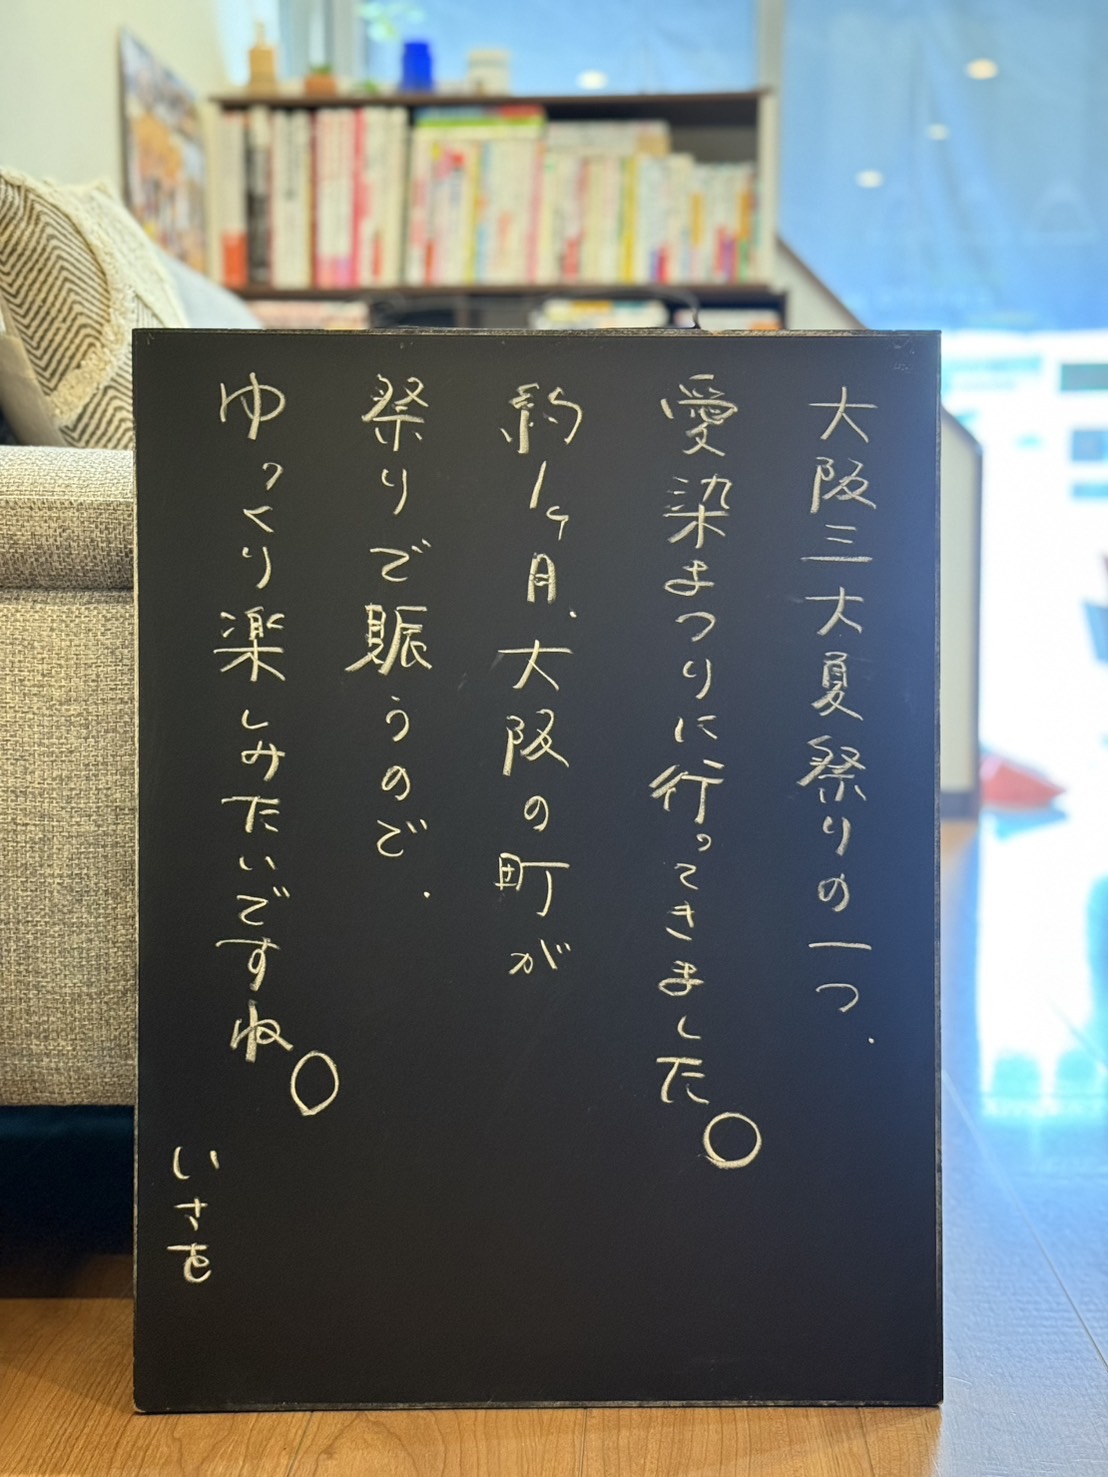 大阪三大夏祭りの一つ、
愛染まつりに行ってきました。
約1ヶ月、大阪の町が
祭りで賑うので、
ゆっくり楽しみたいですね。
いさを